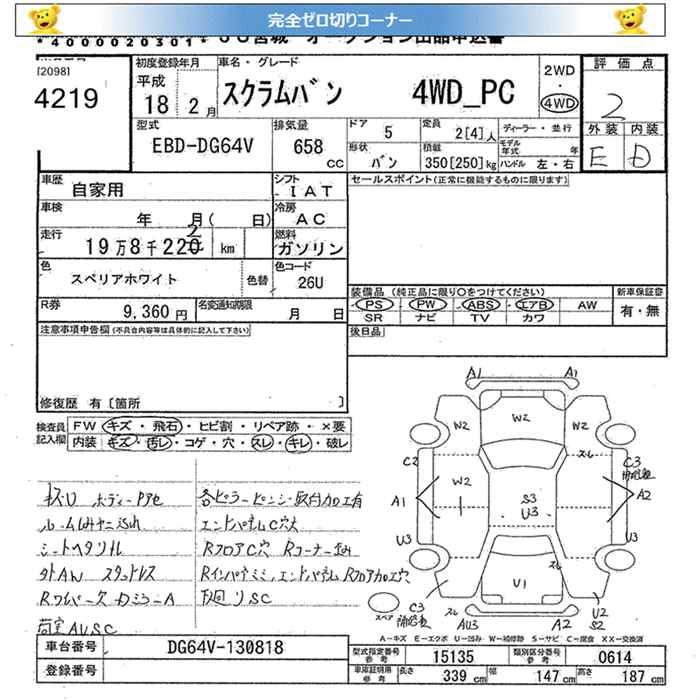 完全ゼロ切りコーナー
*4000020301* JU宮城 オークション出品申込書
[2098]
4219
初度登録年月
平成
18 2月
車名・グレード
スクラムバン 4WD_PC
2WD
・
4WD
評価点
2
外装 内装
E D
型式
EBD-DG64V
排気量
658 cc
ドア 5
形状 バン
定員 2[4]人
積載 350[250]kg
ディーラー・並行
モデル年式 年
ハンドル 左・右
車歴
自家用
シフト
IAT
セールスポイント(正常に機能するものに限ります)
車検
年 月( 日)
冷房
AC
走行
2
19万8千220 km
燃料
ガソリン
色
スペリアホワイト
色替
色コード
26U
R券
9,360円
名変通知期限
月 日
装備品(純正品に限り○をつけてください)
PS PW ABS エアB AW
SR ナビ TV カワ
新車保証書
有・無
後日品
注意事項申告欄(不具合内容等は具体的に記入して下さい)
修復歴 有[箇所 ]
検査員記入欄
FW キズ・飛石・ヒビ割・リペア跡・×要
内装 キズ・汚レ・コゲ・穴・スレ・キレ・破レ
キズU ボディーPアセ
シートヘタリ
外AW スタッドレス
Rワイパー欠 カミラーA
荷室AUSC
各ピラーピンジー取付加工有
エンドパネルC穴大
RフロアC穴 Rコーナー歪み
エンドパネル Rフロア加工穴
下廻りSC
A1 A1
W2 W2 W2
スレ
C2 C3
補修跡
W2
A1 A2
S3
U3
U3 U3
スレ
U1
スペア
C3
補修跡
スレ
AU3 A2
U2
S2
A-キズ E-エクボ U-凹み W-補修跡 S-サビ C-腐食 XX-交換済
車台番号
DG64V-130818
登録番号
型式指定番号 参考 15135
類別区分番号 参考 0614
車庫証明用 参考 長さ 339 cm 幅 147 cm 高さ 187 cm